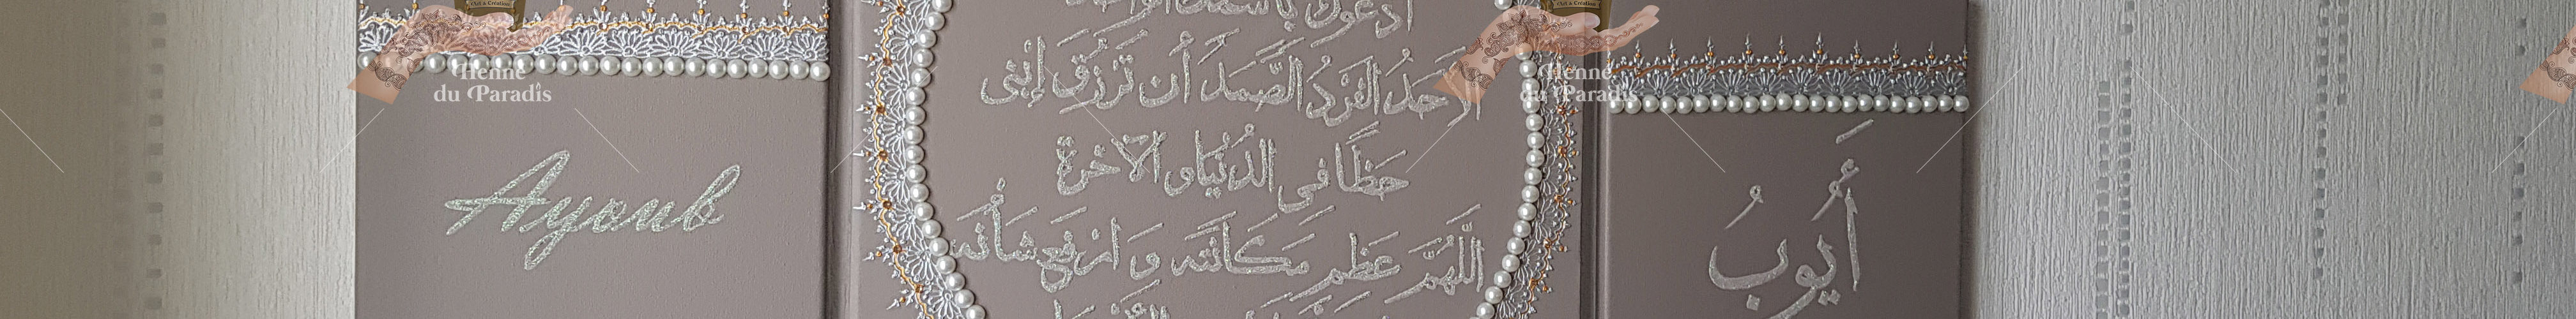 Henne
du Paradis
Ayoub
أدعوك باسمك الواحد
الأحدُ الفَردُ الصَّمَدُ أن تَرزُق إبنى
حَظًا في الدُنيَا و الآخرة
اللَّهُمَّ عَظِم مَكَانَته وَ ارفع شأنه
Henne
du Paradis
أَيُّوبُ